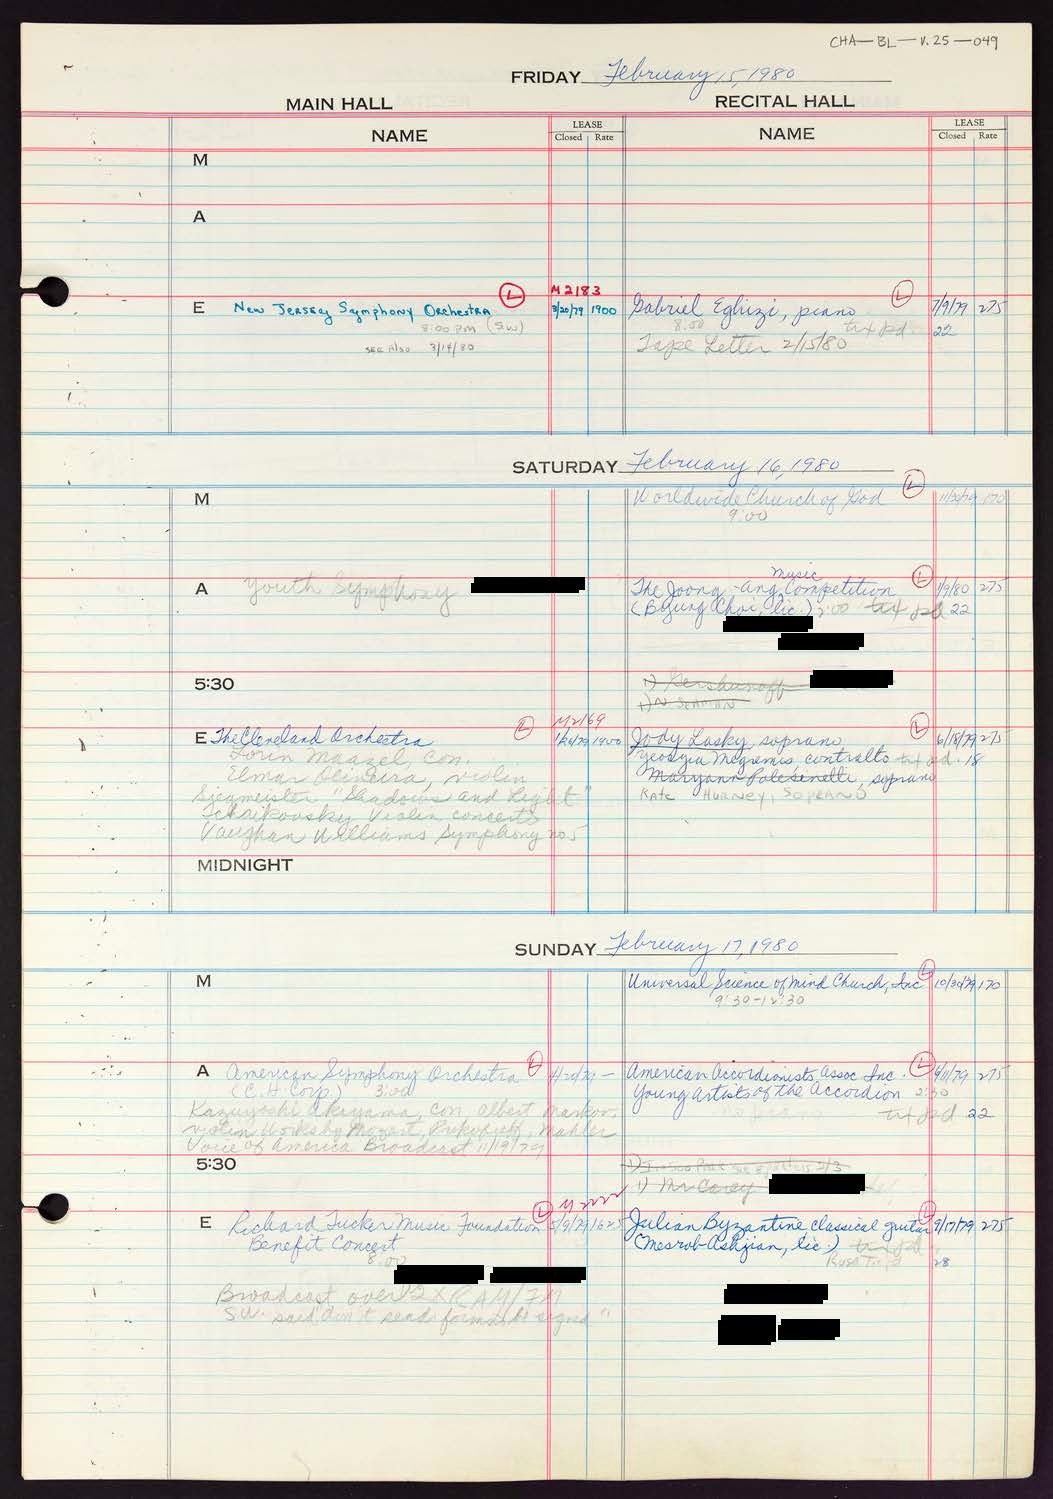 CHA-BL-V.25-049
FRIDAY February 15, 1980
MAIN HALL RECITAL HALL
NAME LEASE Closed Rate NAME LEASE Closed Rate
M
A
M2183
E New Jersey Symphony Orchestra L 3/20/79 1900 Gabriel Eghizi, piano L 7/9/79 275
8:00 pm (SW) 8:00 tax pd. 22
see also 3/14/80 Tape Letter 2/15/80
SATURDAY February 16, 1980
M Worldwide Church of God L 170
9:00
music
A Youth Symphony The Joong-Ang Competition L 1/9/80 275
(Bojung Choi, lic.) 2:00 tax pd 22
5:30 1) Gershunoff
1) N. Seaman
M2169
E The Cleveland Orchestra L 1900 Jody Lasky, soprano L 6/18/79 275
Lorin Maazel, Con. Georgia Megremis, contralto tax pd. 18
Elmar Oliveira, violin Maryann Polesinelli, soprano
Siegmeister "Shadows and Light" Kate Hurney, soprano
Tchaikovsky Violin concerto
Vaughan Williams Symphony no 5
MIDNIGHT
SUNDAY February 17, 1980
M Universal Science of Mind Church, Inc L 10/30/79 170
9:30-12:30
A American Symphony Orchestra L - American Accordionists Assoc Inc. L 275
(C.H. Corp) 3:00 Young Artists of the Accordion 2:30
Kazuyoshi Akiyama, con. Albert Markov, no piano tax pd 22
violin Works by Mozart, Prokofieff, Mahler
Voice of America Broadcast 11/19/79
5:30 1)
1) McCorey
M2222
E Richard Tucker Music Foundation L 5/9/79 1625 Julian Byzantine classical guitar L 9/17/79 275
Benefit Concert (Mesrob Ashjian, lic.) tax pd.
8:00 28
Broadcast over
SW. said don't send forms